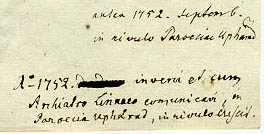 antea 1752. Septemb.
in rivulo Paroeciae Upharad
Ao. 1752. inveni et cum
Archiatro Linnaeo communicavi, in
Paroecia Upharad, in rivulo crescit.